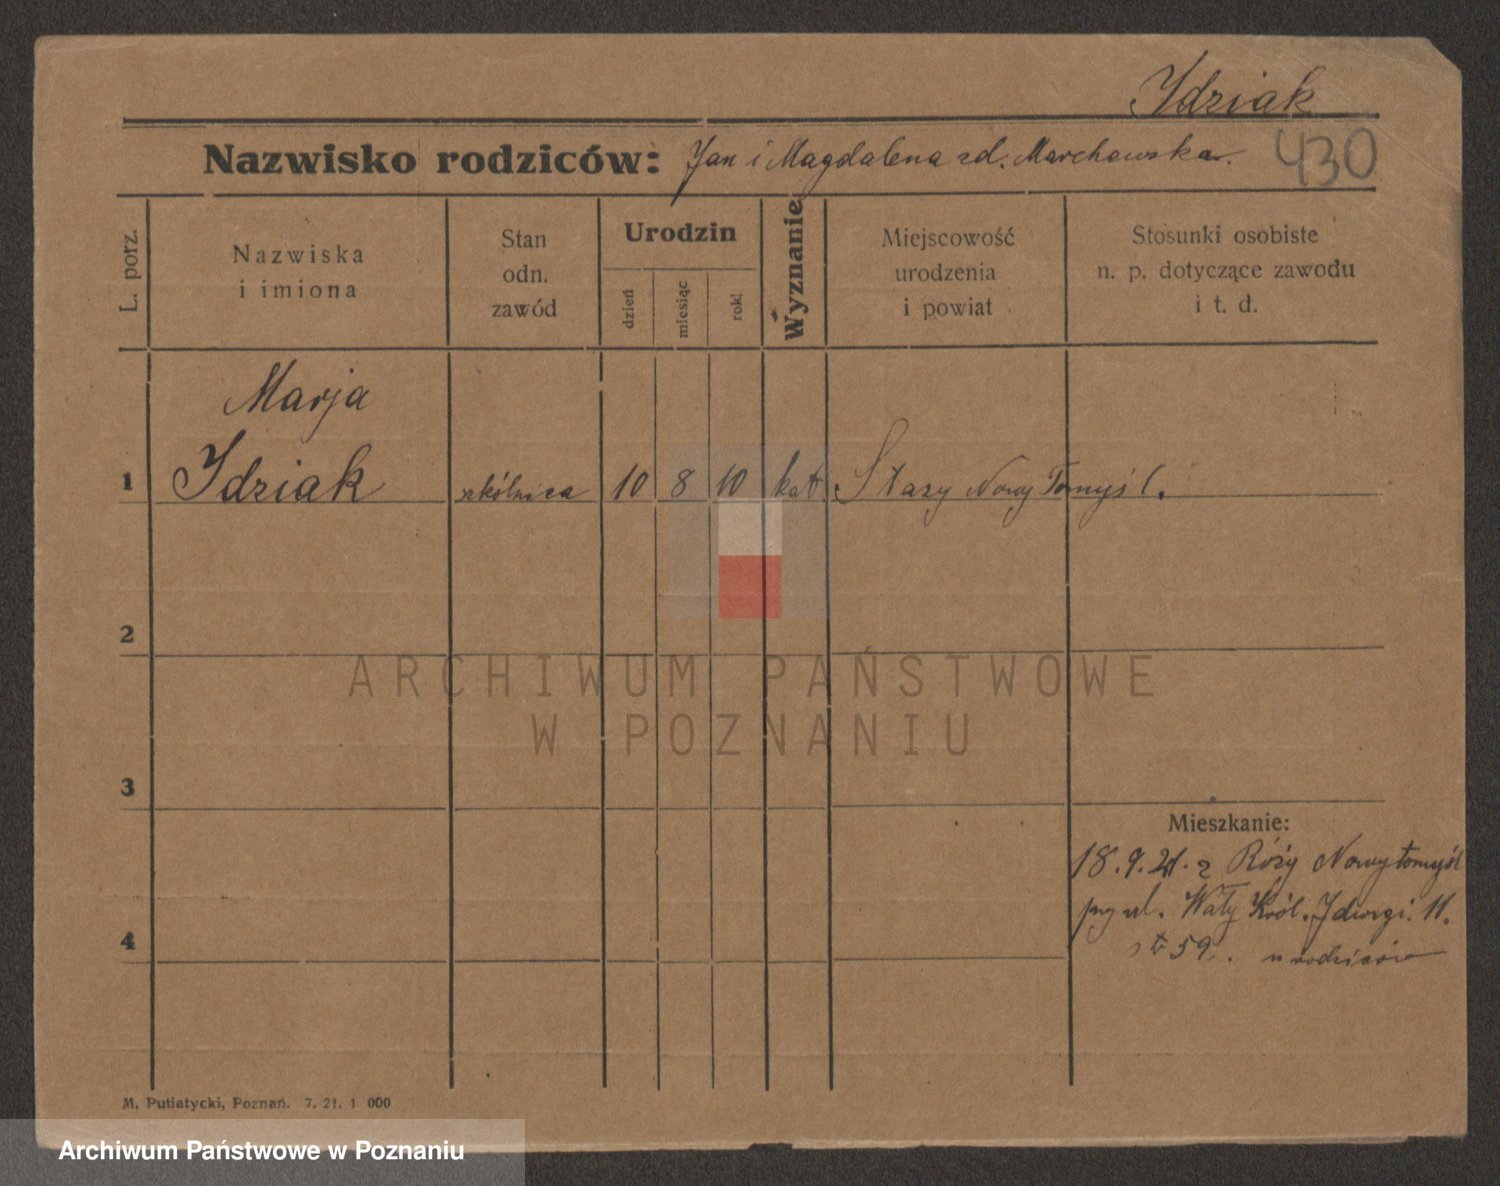 Idziak
Nazwisko rodziców: Jan i Magdalena zd. Marchewska.
430
L. porz.
Nazwiska
i imiona
Stan
odn.
zawód
Urodzin
dzień
miesiąc
rok
Wyznanie
Miejscowość
urodzenia
i powiat
Stosunki osobiste
n. p. dotyczące zawodu
i t. d.
Marja
1 Idziak szkólnica 10 8 10 kat. Stary Nowy Tomyśl.
2
3
Mieszkanie:
18.9.21. z Róży Nowytomyśl
przy ul. Wały Król. Jadwigi. 11.
4
59. u rodziców
ARCHIWUM PAŃSTWOWE
W POZNANIU
M. Putiatycki, Poznań. 7. 21. 1 000
Archiwum Państwowe w Poznaniu